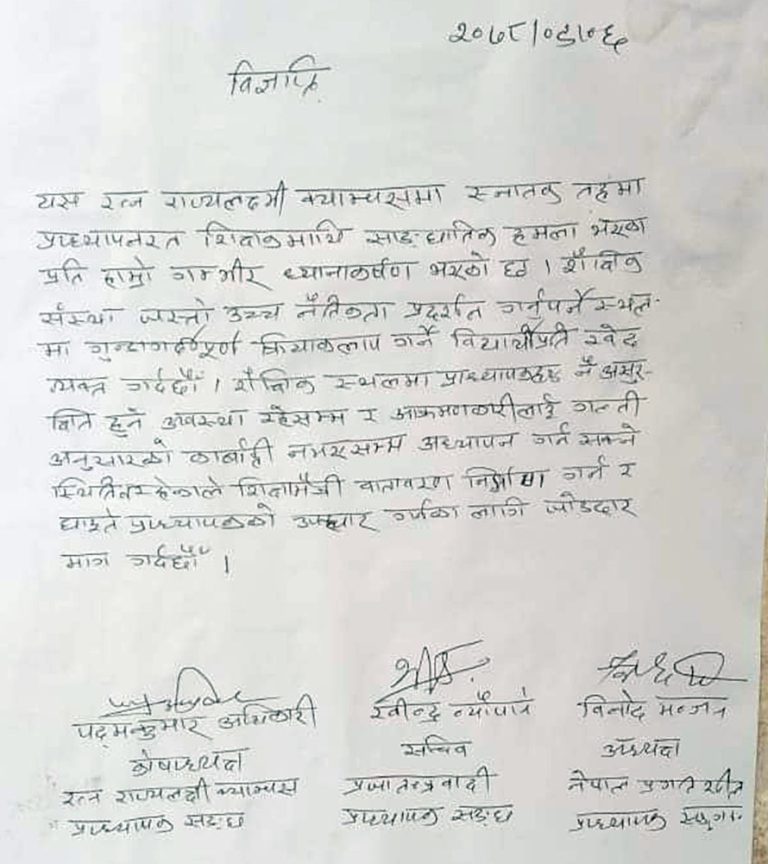 २०७८/०९/०६
विज्ञप्ति
यस रत्न राज्यलक्ष्मी क्याम्पसमा स्नातक तहमा
प्राध्यापनरत शिक्षकमाथि साङ्घातिक हमला भएका
प्रति हाम्रो गम्भीर ध्यानाकर्षण भएको छ । शैक्षिक
संस्था जस्तो उच्च नैतिकता प्रदर्शन गर्नुपर्ने स्थल-
मा गुन्डागर्दीपूर्ण क्रियाकलाप गर्ने विद्यार्थीप्रति खेद
व्यक्त गर्दछौं । शैक्षिक स्थलमा प्राध्यापकहरू नै असुर-
क्षित हुने अवस्था रहेसम्म र आक्रमणकारीलाई गल्ती
अनुसारको कार्बाही नभएसम्म अध्यापन गर्न सक्ने
स्थिति नरहेकाले शिक्षामैत्री वातावरण निर्माण गर्न र
घाइते प्राध्यापकको उपचार गर्नका लागि जोडदार
माग गर्दछौं ।
पद्मकुमार अधिकारी
कोषाध्यक्ष
रत्न राज्यलक्ष्मी क्याम्पस
प्राध्यापक सङ्घ
रवीन्द्र न्यौपाने
सचिव
प्रजातन्त्रवादी
प्राध्यापक सङ्घ
विनोद
अध्यक्ष
नेपाल प्रगतिशील
प्राध्यापक